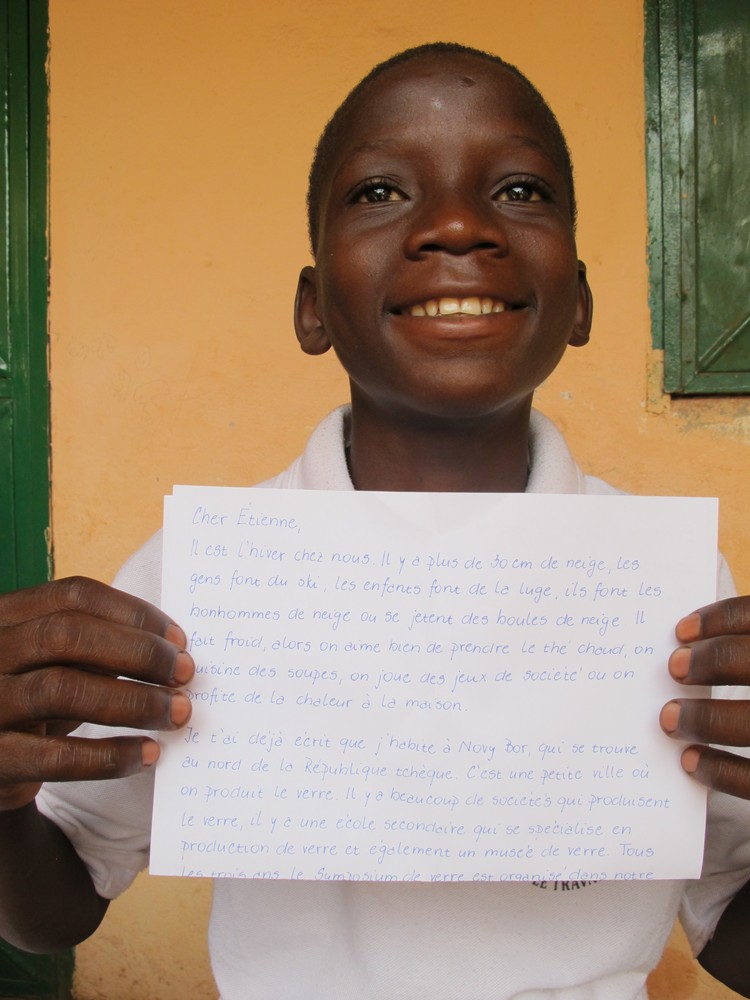 Cher Étienne,
Il est l'hiver chez nous. Il y a plus de 30 cm de neige, les
gens font du ski, les enfants font de la luge, ils font les
bonhommes de neige ou se jetent des boules de neige Il
fait froid, alors on aime bien de prendre le thé chaud, on
cuisine des soupes, on joue des jeux de société ou on
profite de la chaleur à la maison.
Je t'ai déjà écrit que j'habite à Nový Bor, qui se trouve
au nord de la République tchèque. C'est une petite ville où
on produit le verre. Il y a beaucoup de sociétés qui produisent
le verre, il y a une école secondaire qui se spécialise en
production de verre et également un musée de verre. Tous
les trois ans le Symposium de verre est organisé dans notre
LE TRAVA